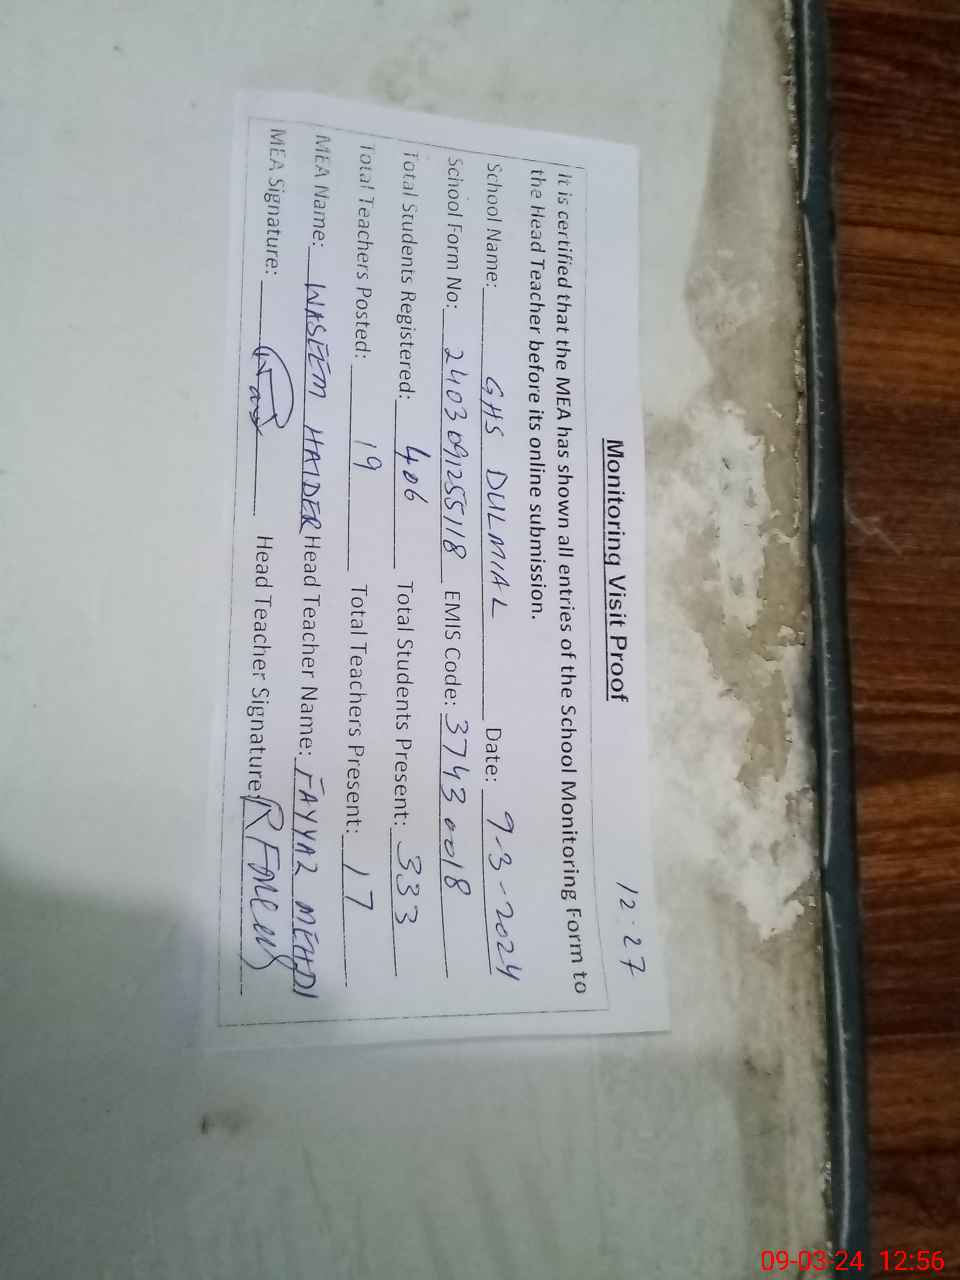 12:27
Monitoring Visit Proof
It is certified that the MEA has shown all entries of the School Monitoring Form to
the Head Teacher before its online submission.
School Name: GHS DULMIAL Date: 9-3-2024
School Form No: 2403091255118 EMIS Code: 37430018
Total Students Registered: 406 Total Students Present: 333
Total Teachers Posted: 19 Total Teachers Present: 17
MEA Name: WASEEM HAIDER Head Teacher Name: FAYYAZ MEHDI
MEA Signature: Head Teacher Signature:
09-03-24 12:56